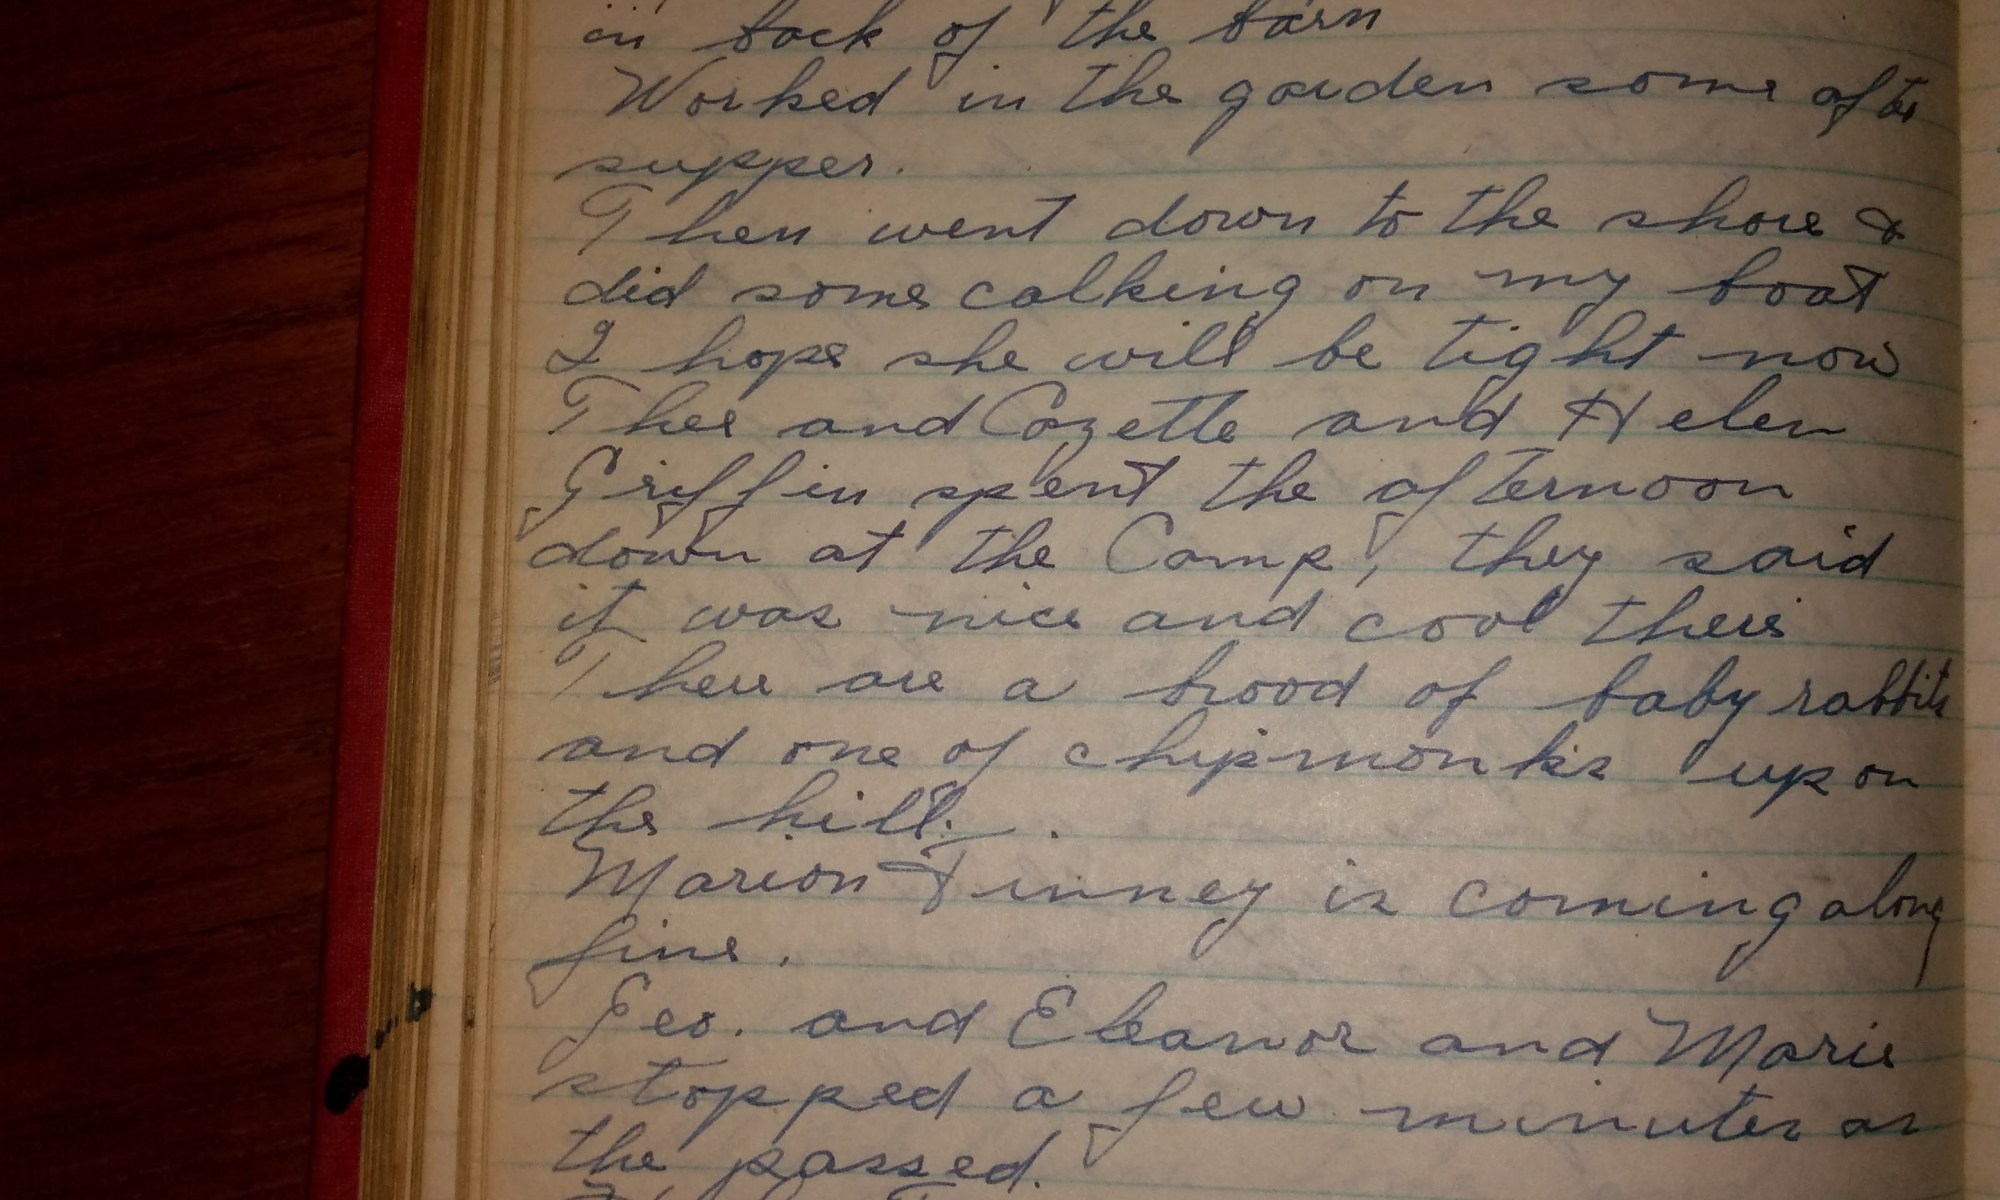 in back of the barn
Worked in the garden some after
supper.
Then went down to the shore &
did some calking on my boat
I hope she will be tight now
Thee and Cozette and Helen
Griffin spent the afternoon
down at the Camp, they said
it was nice and cool there
There are a brood of baby rabbits
and one of chipmonks up on
the hill.
Marion Finney is coming along
fine.
Geo. and Eleanor and Marie
stopped a few minutes as
the passed.